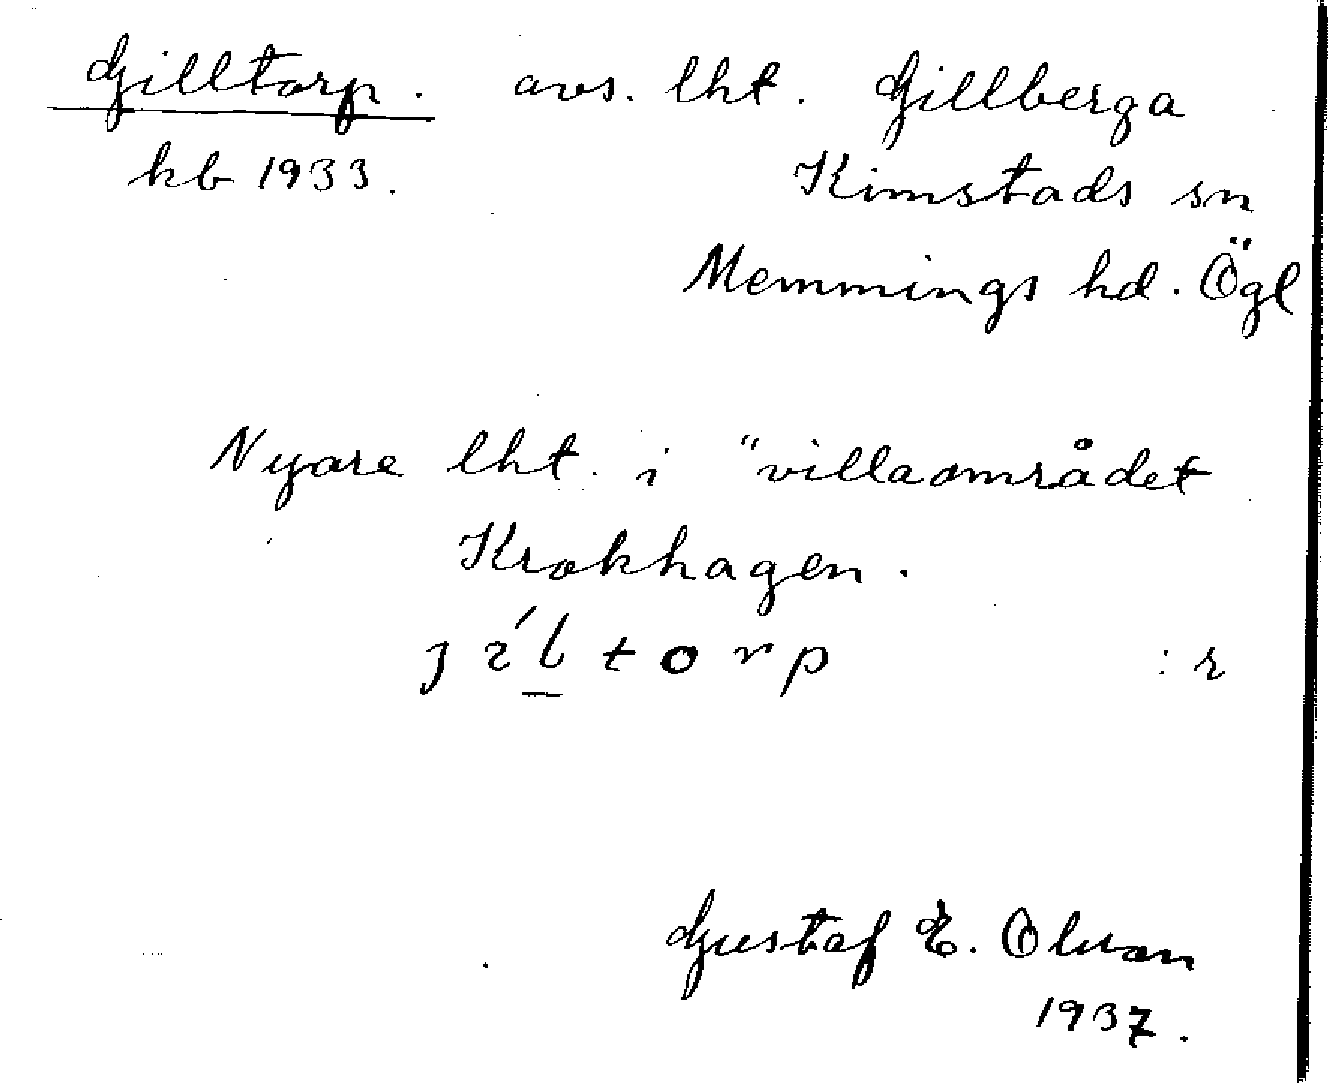 Gilltorp. avs. lht. Gillberga
kb 1933. Kimstads sn
Memmings hd. Ögl
Nyare lht. i "villaområdet
Krokhagen.
torp :r
Gustaf E. Olsson
1937.